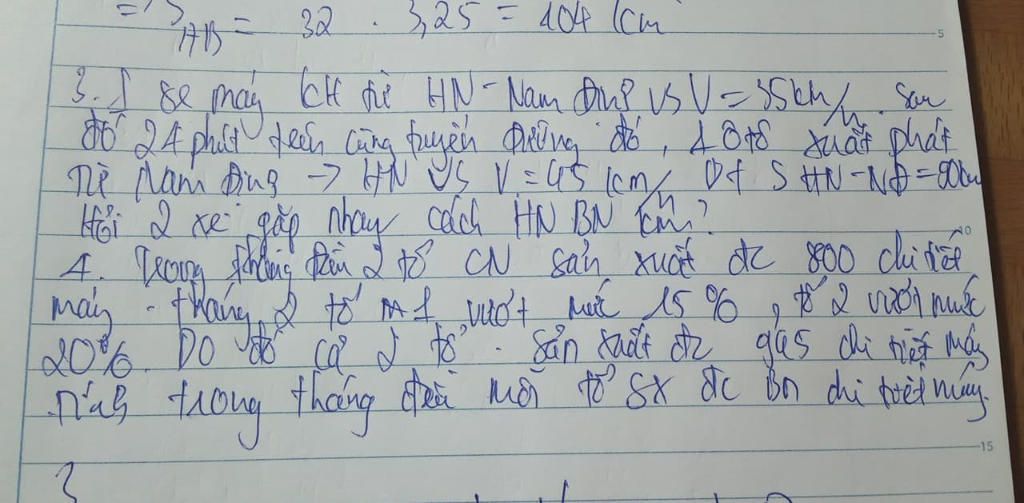 = > S
AB = 32 . 3,25 = 104 km
3. 1 xe máy KH từ HN - Nam Định vs V = 35km/h. Sau
đó 24 phút trên cùng tuyến đường đó, 1 Ô tô xuất phát
Từ Nam Định → HN VS V = 45 km/h Df S HN - NĐ = 90km
Hỏi 2 xe gặp nhay cách HN BN km?
4. Trong tháng đầu 2 tổ CN sản xuất đc 800 chi tiết
máy - tháng 2 tổ 1 vượt mức 15%, tổ 2 vượt mức
20%. Do đó cả 2 tổ. Sản xuất đc 945 chi tiết máy
Tính trong tháng đầu mỗi tổ SX đc Bn chi tiết máy.
3
5
10
15